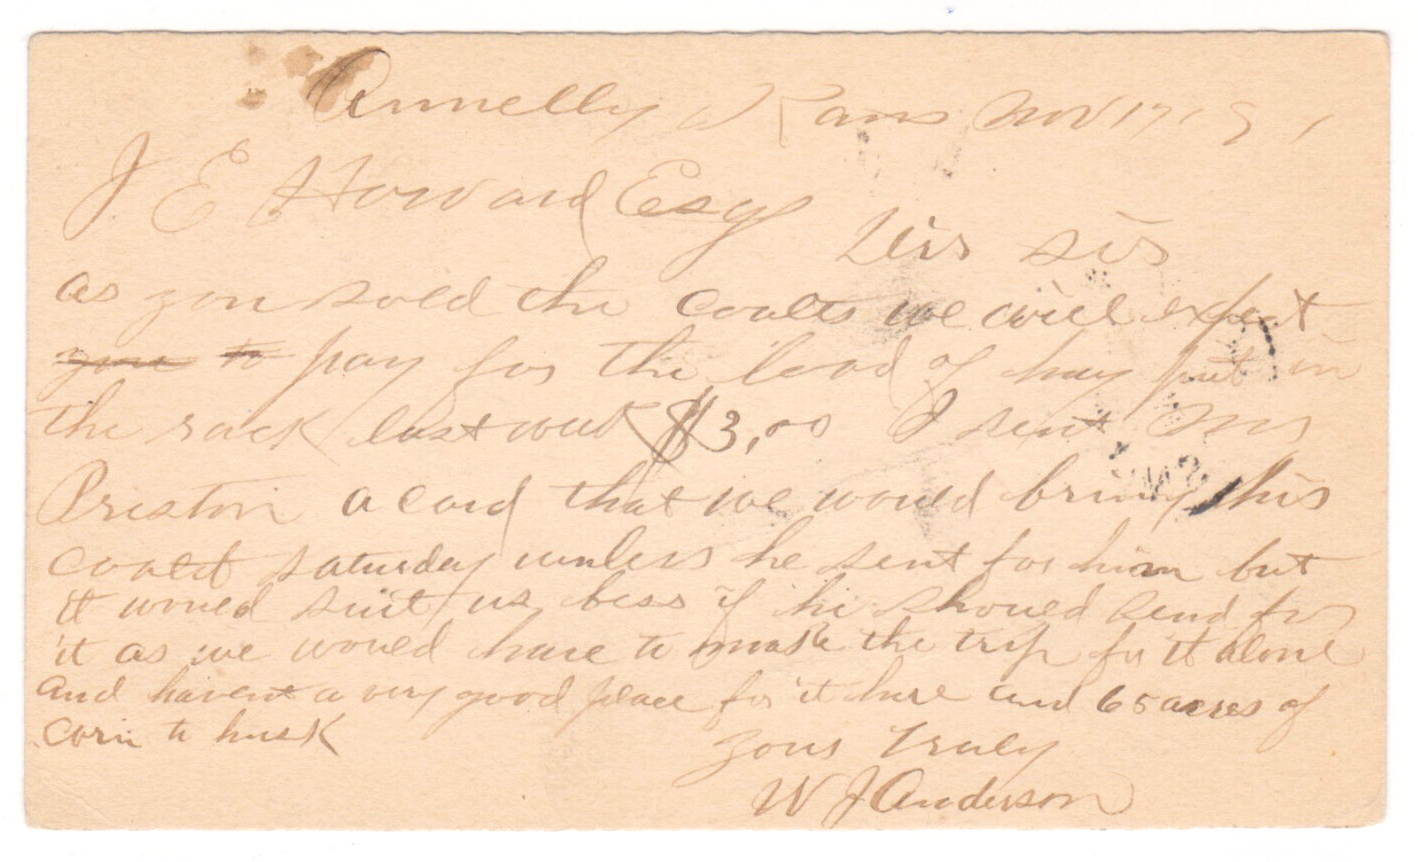 Annelly Kans Nov 17 / 9 1
J. E Howard Esq
Dir sir
as you sold the coalts we will expect
you to pay for the load of hay put in
the rack last week $3,00 I sent Mr
Preston a card that we would bring his
coalt saturday unless he sent for him but
it would suit us bess if he should send for
it as we would have to make the trip for it alone
and havent a very good place for it here and 65 acres of
corn to husk
yours Truly
W J Anderson